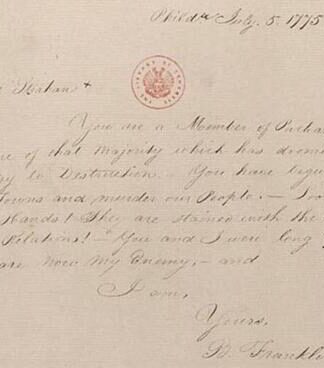 Philda July. 5. 1775
Strahan
THE LIBRARY OF CONGRESS
You are a Member of
of that Majority which has
to Destruction.— You have
Towns and murder our People.—
Hands! They are stained with the
Relations!— You and I were long
are now my Enemy,— and
I am,
Yours,
B. Frankl